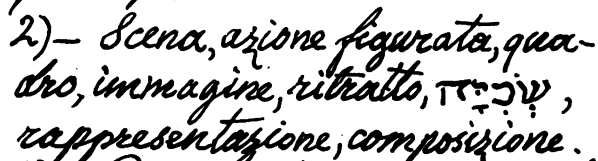 2)— Scena, azione figurata, qua-
dro, immagine, ritratto, שְׂכִיָּה,
rappresentazione, composizione.